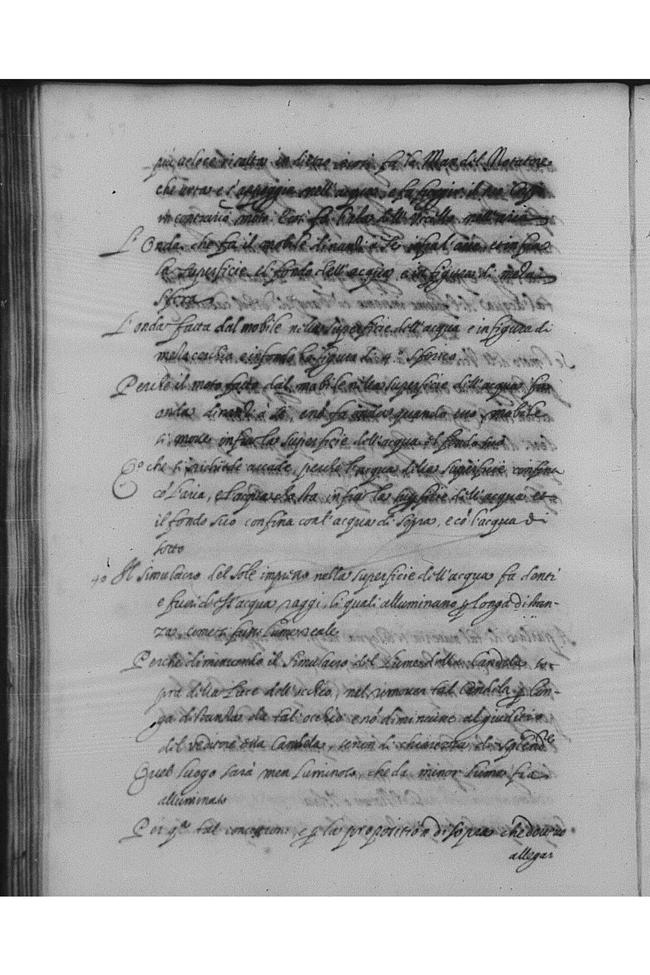 più veloce risulta in dietro così fa la Man del Notatore
che urta e s'appoggia nell'acqua, e fa fuggir il suo
in contrario moto. Così fa l'ala dell'Uccello nell'aria
L'Onda, che fa il mobile dinanzi a se infra l'aria, e infra
la superficie, e'l fondo dell'acqua, e in figura di meza
sfera
L'onda fatta dal mobile nella superficie dell'acqua e in figura di
meza e infondo la figura di 4.º sferico
Perche il moto fatto dal mobile nella superficie dell'acqua fa
onda dinanzi à se, e nò fa onda quando esso mobile
si move infra la superficie dell'acqua e'l fondo suo
Cò che si richiede accade, perche l'acqua della superficie confina
cò l'aria, e l'acqua che sta infra la superficie dell'acqua e
il fondo suo confina con l'acqua di sopra, e cò l'acqua di
sotto
40 Il simulacro del Sole impresso nella superficie dell'acqua fa dentì
e fuori d'ess'acqua raggi, li quali alluminano p longa distan-
za, come se fusse lume reale
Perche diminuendo il simulacro del lume della Candela so-
pra della luce dell'occhio, nel rimover tal Candela p lun-
ga distantia da tal'occhio e nò diminuisce al giuditio
del veditore essa Candela, senon di chiarezza, e splendre
Quel luogo sarà men luminoso, che da minor lume fia
alluminato
Per qta tal concessione, e p la propositiòn di sopra che dovrò
allegar